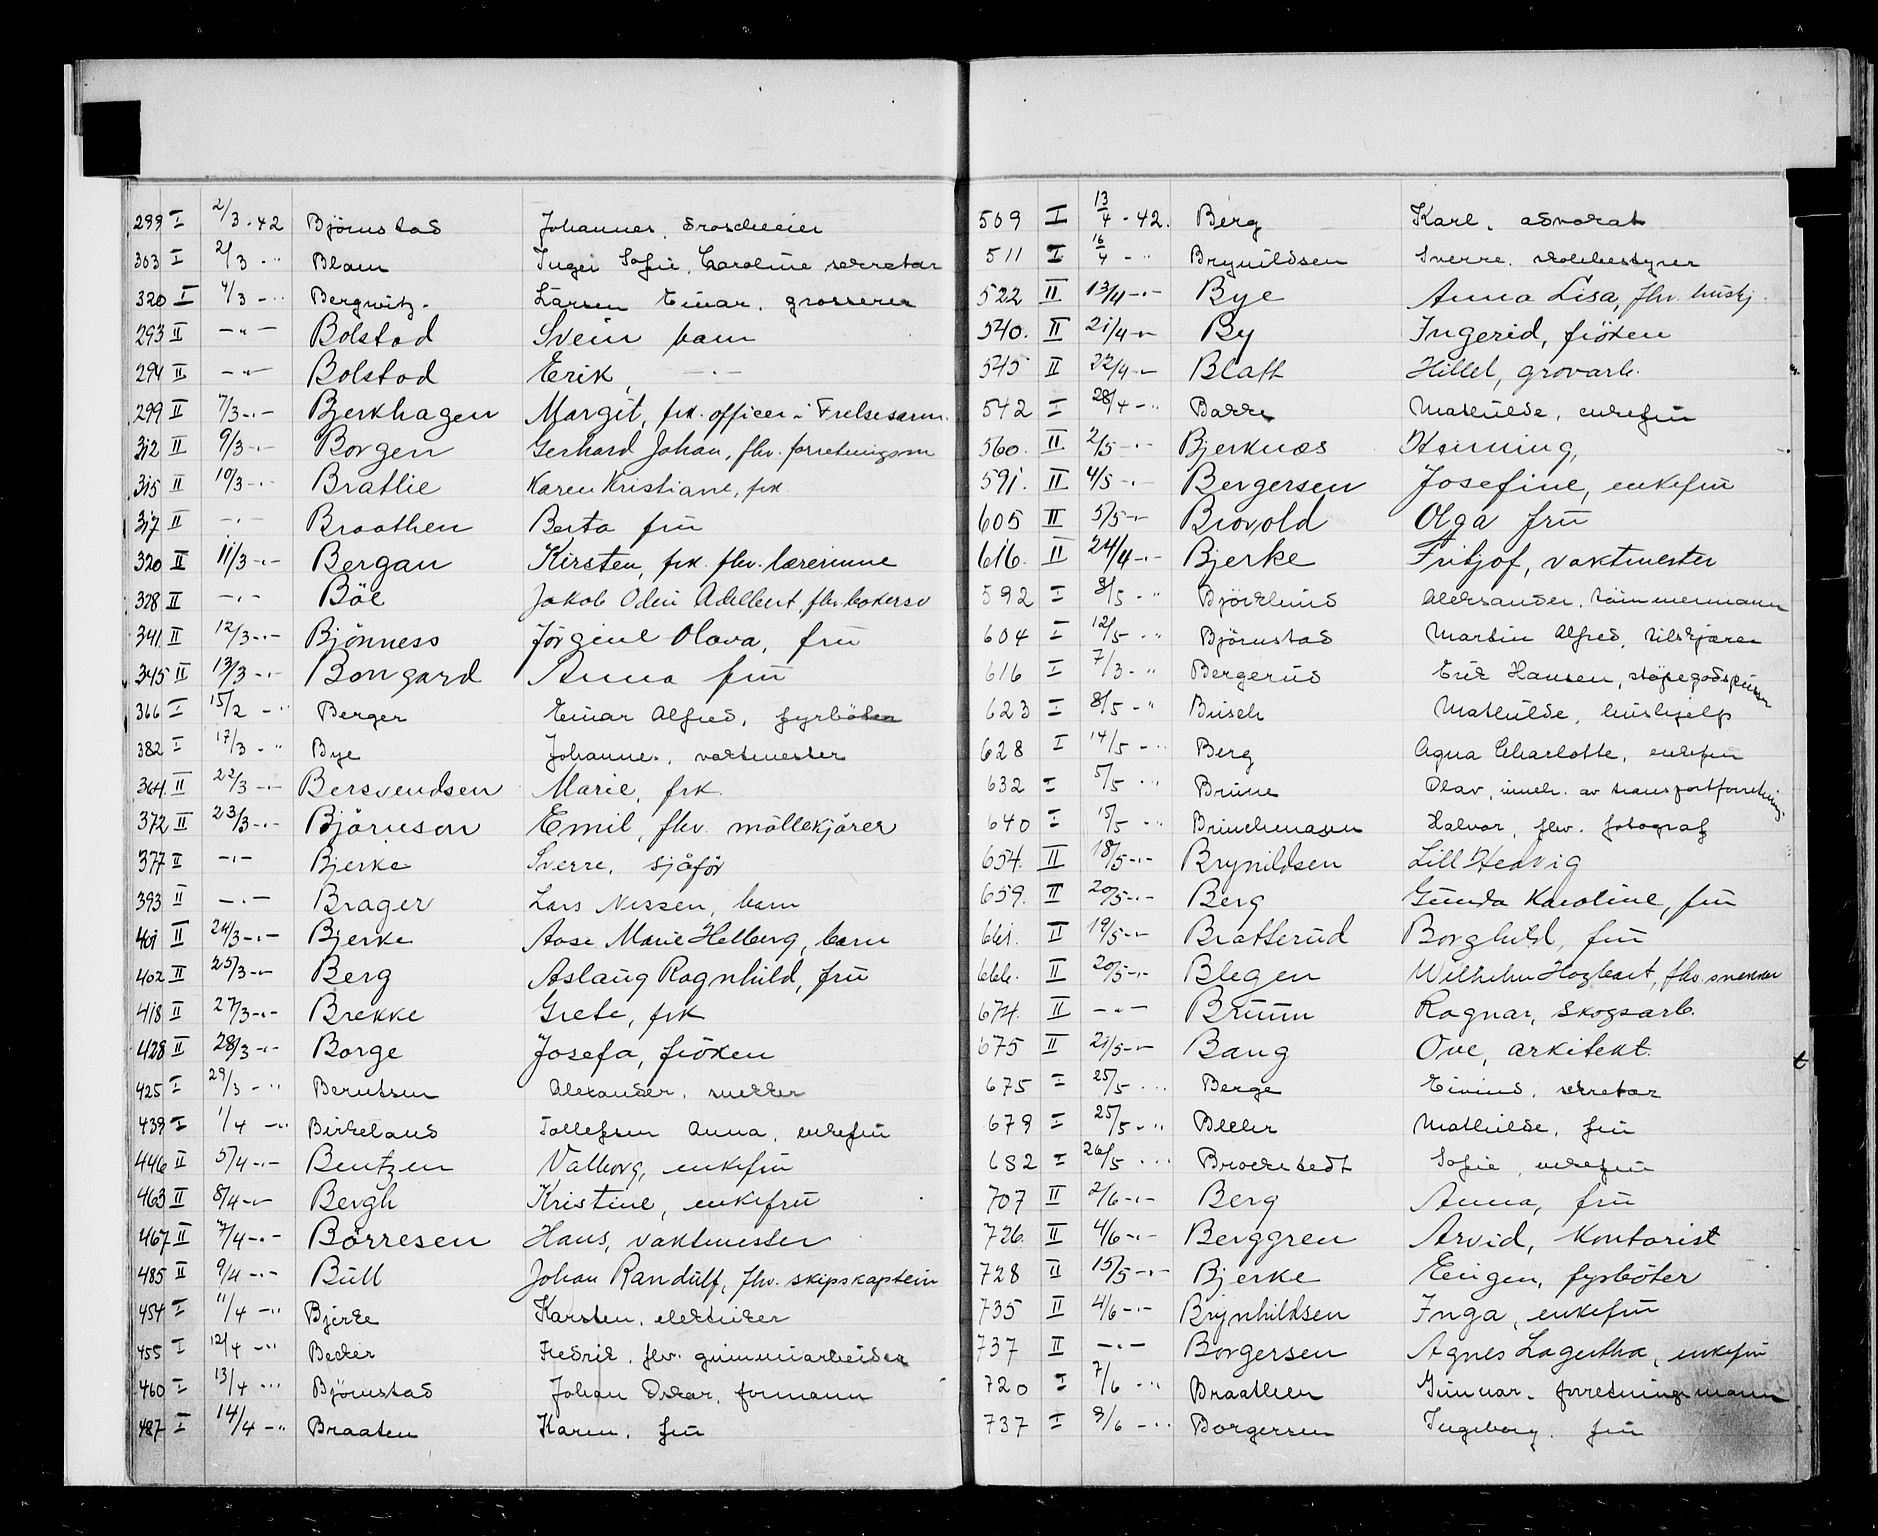 299 I 2/3-42 Björnstad Johannes, droscheeier
303 I 2/3 -"- Blam Inger Sofie, Caroline sekretær
320 I 4/3 -"- Bergwitz- Larsen Einar, grosserer
293 II -"- Bolstad Svein barn
294 II -"- Bolstad Erik, -"-
299 II 7/3 -"- Bjerkhagen Margit, frk. officer i Frelsesarm.
312 II 9/3 -"- Borgen Gerhard Johan, fhv. forretningsm
315 II 10/3 -"- Bratlie Karen Kristiane, frk.
317 II -"- Braathen Berta frü
320 II 11/3 -"- Bergan Kirsten, frk. fhv. lærerinne
328 II -"- Böe Jakob Odin Adelbert, fhv.
341 II 12/3 -"- Bjönness Jörgine Olava, frü
345 II 13/3 -"- Bongard Anna frü
366 I 15/2 -"- Berger Einar Alfred, fyrböter
382 I 17/3 -"- Bye Johannes, vaktmester
364 II 22/3 -"- Bersvendsen Marie, frk.
372 II 23/3 -"- Björnson Emil, fhv. möllekjörer
377 II -"- Bjerke Sverre, sjåför
393 II -"- Brager Lars Nissen, barn
401 II 24/3 -"- Bjerke Aase Marie Helberg, barn
402 II 25/3 -"- Berg Aslaug Ragnhild, frü
418 II 27/3 -"- Brekke Grete, frk
428 II 28/3 -"- Borge Josefa, fröken
425 I 29/3 -"- Berntsen Alexander, snekker
439 I 1/4 -"- Birkeland Tollefsen Anna, enkefrü
446 II 5/4 -"- Bentzen Valborg, enkefrü
463 II 8/4 -"- Bergh Kristine, enkefrü
467 II 7/4 -"- Börresen Hans, vaktmester
485 II 9/4 -"- Büll Johan Randülf, fhv. skipskaptein
454 I 11/4 -"- Bjerke Karsten, elektriker
455 I 12/4 -"- Becker Fredrik, fhv. gümmiarbeider
460 I 13/4 -"- Björnstad Johan Oskar, formann
487 I 14/4 -"- Braaten Karen, frü
509 I 13/4-42. Berg Karl, advokat
511 I 16/4 -"- Brynildsen Sverre, skolebestyrer
522 II 13/4 -"- Bye Anna Lisa, fhv. hushj.
540. II 21/4 -"- By Ingerid, fröken
545 II 22/4 -"- Blatt Hillel, grovarb.
542 I 28/4 -"- Bakke Mathilde, enkefrü
560. II. 2/5 -"- Bjerknæs Henning,
591. II 4/5 -"- Bergersen Josefine, enkefrü
605 II 5/5 -"- Brovold Olga frü
616. II 24/4 -"- Bjerke Fritjof, vaktmester
592 I 8/5 -"- Björklund Aleksander, tömmermann
604 I 12/5 -"- Björnstad Martin Alfred, bilskjörer
616 I 7/3 -"- Bergerud Erik Hansen, stöpegodspüsser
623 I 8/5 -"- Büsch Mathilde, hüshjelp
628 I 14/5 -"- Berg Agna Charlotte, enkefrü
632 I 5/5 -"- Brüne Olav, inneh. av transportforretning.
640 I 15/5 -"- Brinchmann Halvor, fhv. fotograf
654. II 18/5 -"- Brynildsen Lill Hedvig
659. II 20/5 -"- Berg Günda Karoline, frü
661. II 19/5 -"- Bratterud Borghild, frü
666. II 20/5 -"- Blegen Wilhelm Hogbart, fhv. snekker
674. II -"- Brüün Ragnar, skogsarb.
675 II 21/5 -"- Bang Ove, arkitekt.
675 I 25/5 -"- Berge Eivind, sekretær
679 I 25/5 -"- Bleker Mathilde, frü
682 I 26/5 -"- Brockstedt Sofie, enkefrü
707 II 2/6 -"- Berg Anna, frü
726. II 4/6 -"- Berggren Arvid, kontorist
728 II 15/5 -"- Bjerke Eügen, fyrböter
735 II 4/6 -"- Brynhildsen Inga, enkefrü
737 II -"- Borgersen Agnes Lagertha, enkefrü
720 I 7/6 -"- Braathen Günnar, forretningsmann
737 I 9/6 -"- Borgersen Ingeborg, frü